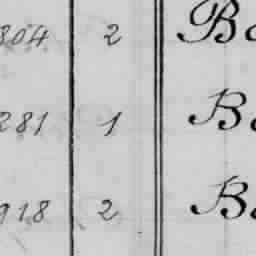 804 2 Ba
281 1 Ba
918 2 Ba